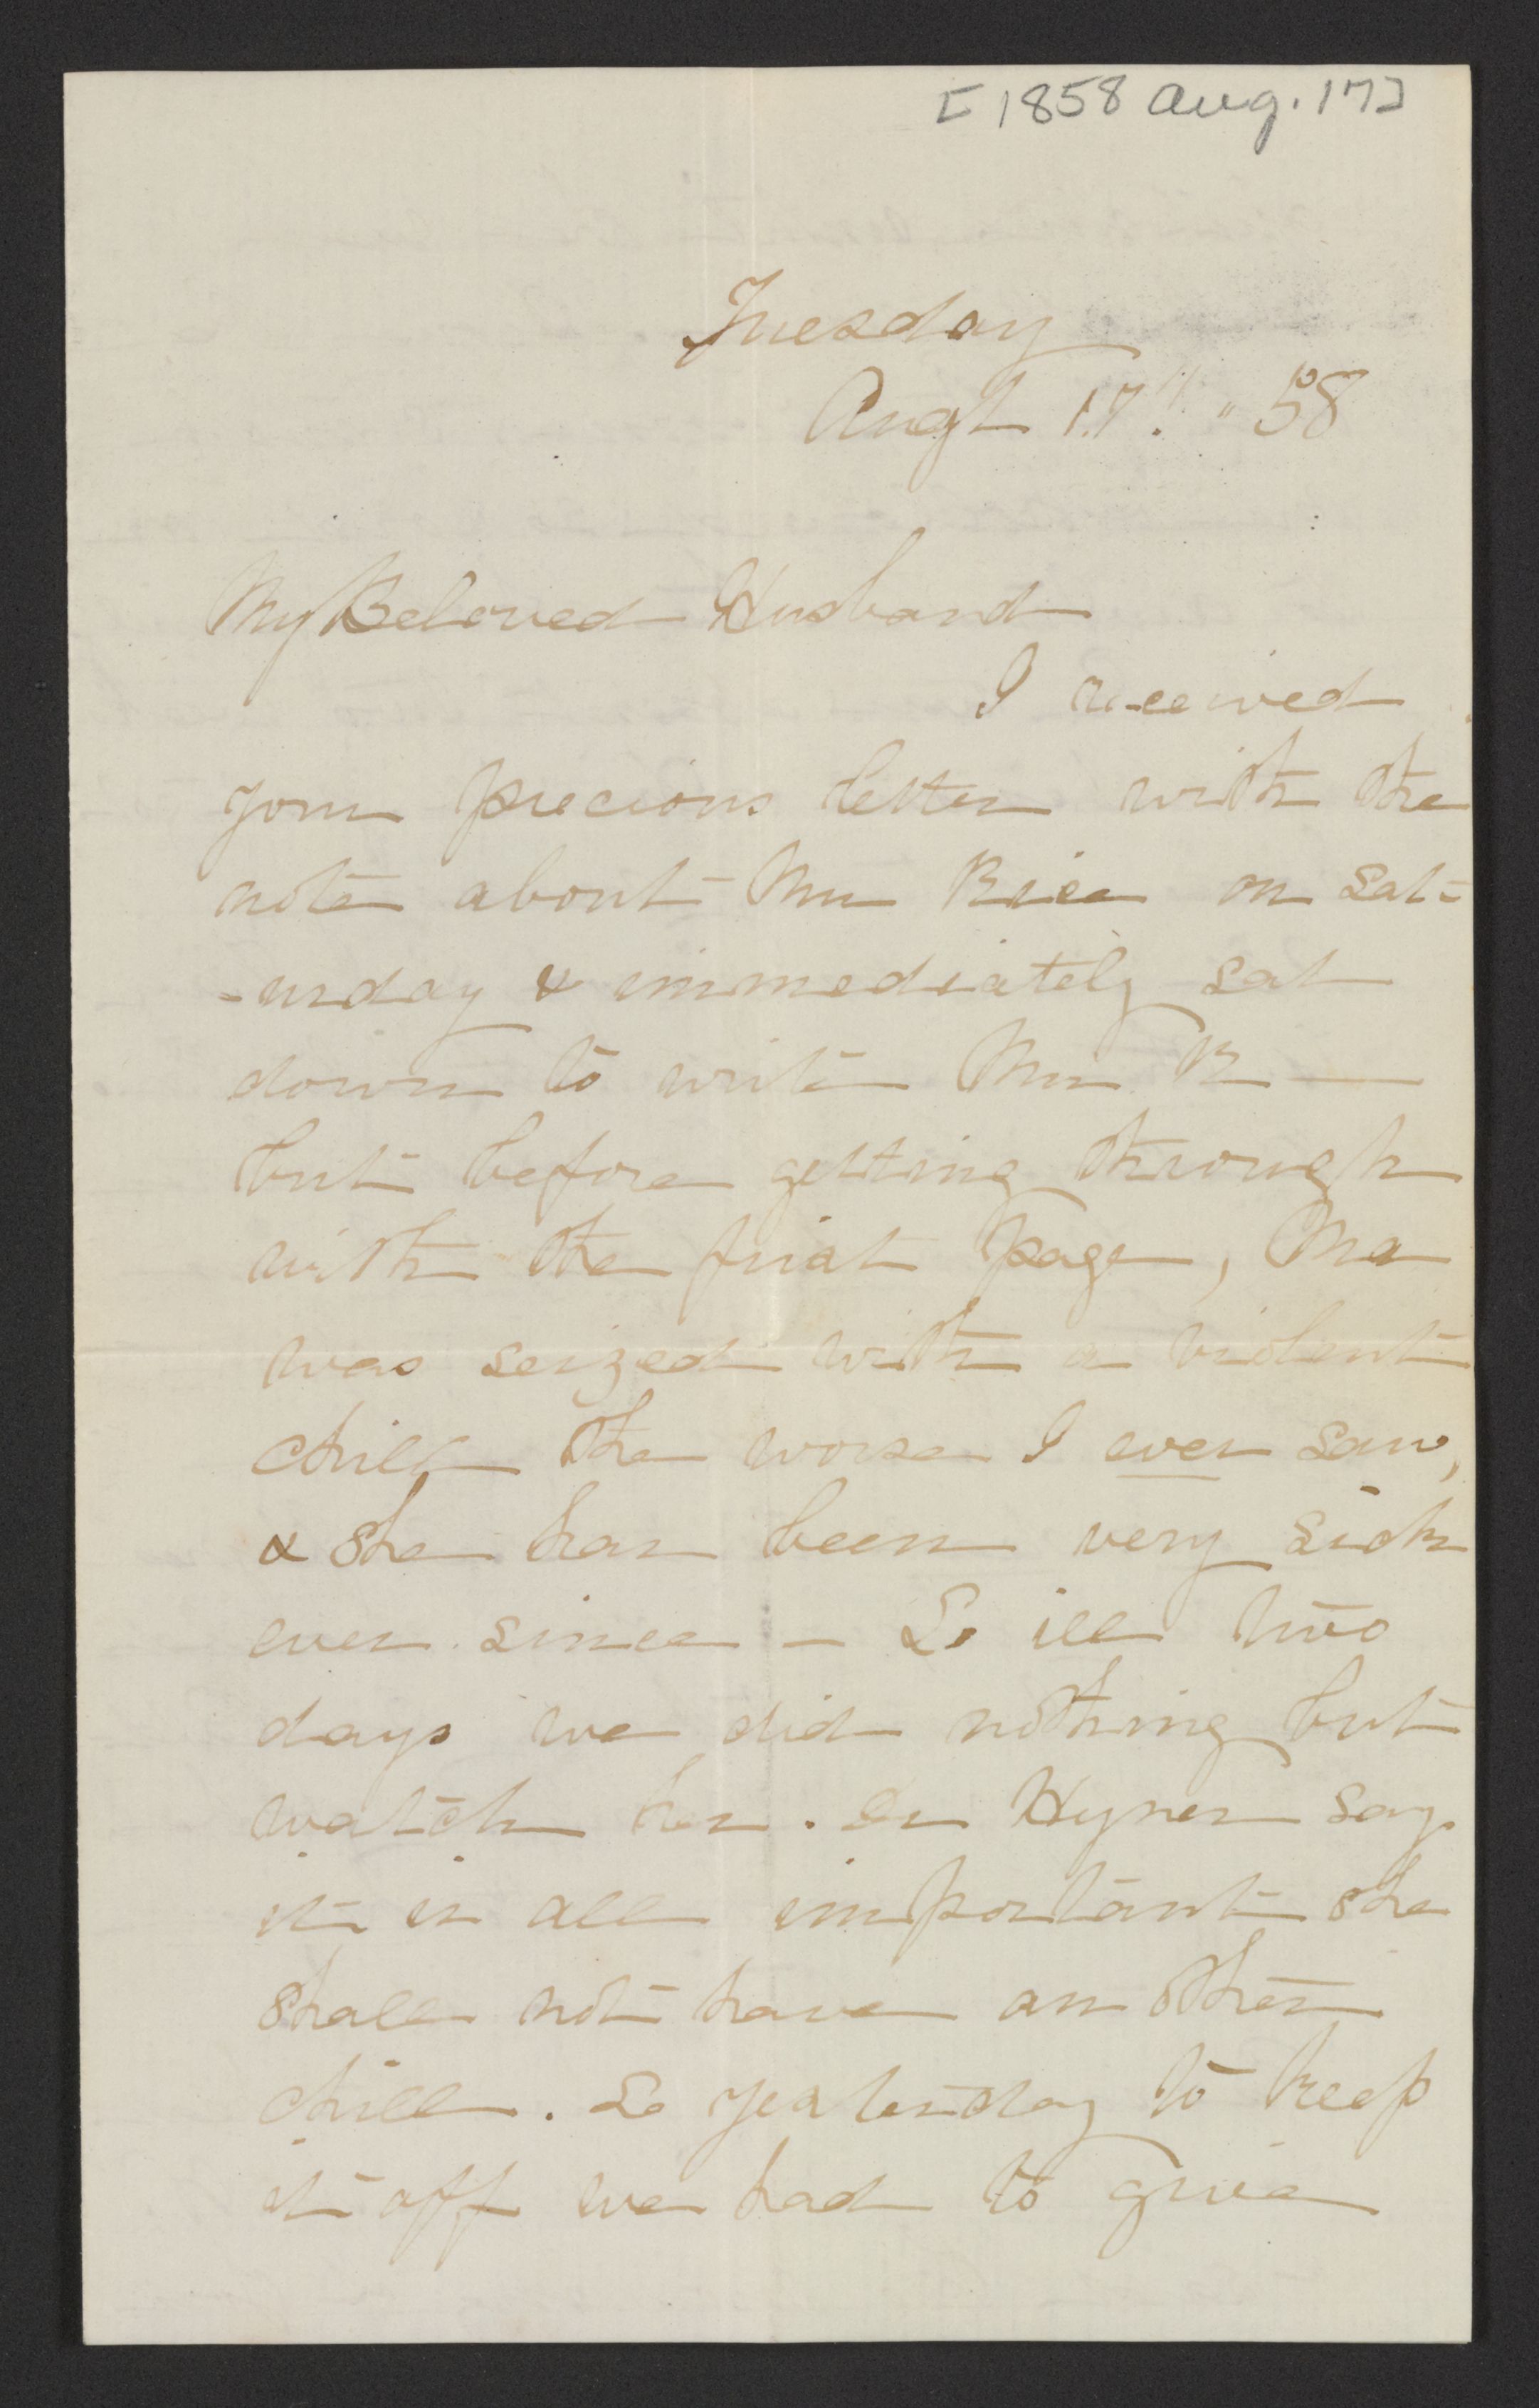 [1858 Aug. 17]
Tuesday
Augt 17th " 58
My Beloved Husband
I received
your precious letter with the
note about Mr Rice on Sat-
-urday & immediately sat
down to write Mr R —
but before getting through
with the first page, Ma
was seized with a violent
chill the worse I ever saw,
& she has been very sick
ever since — So ill two
days we did nothing but
watch her. Dr Hyner say
it is all important she
shall not have an other
chill. So yesterday to keep
it off we had to give